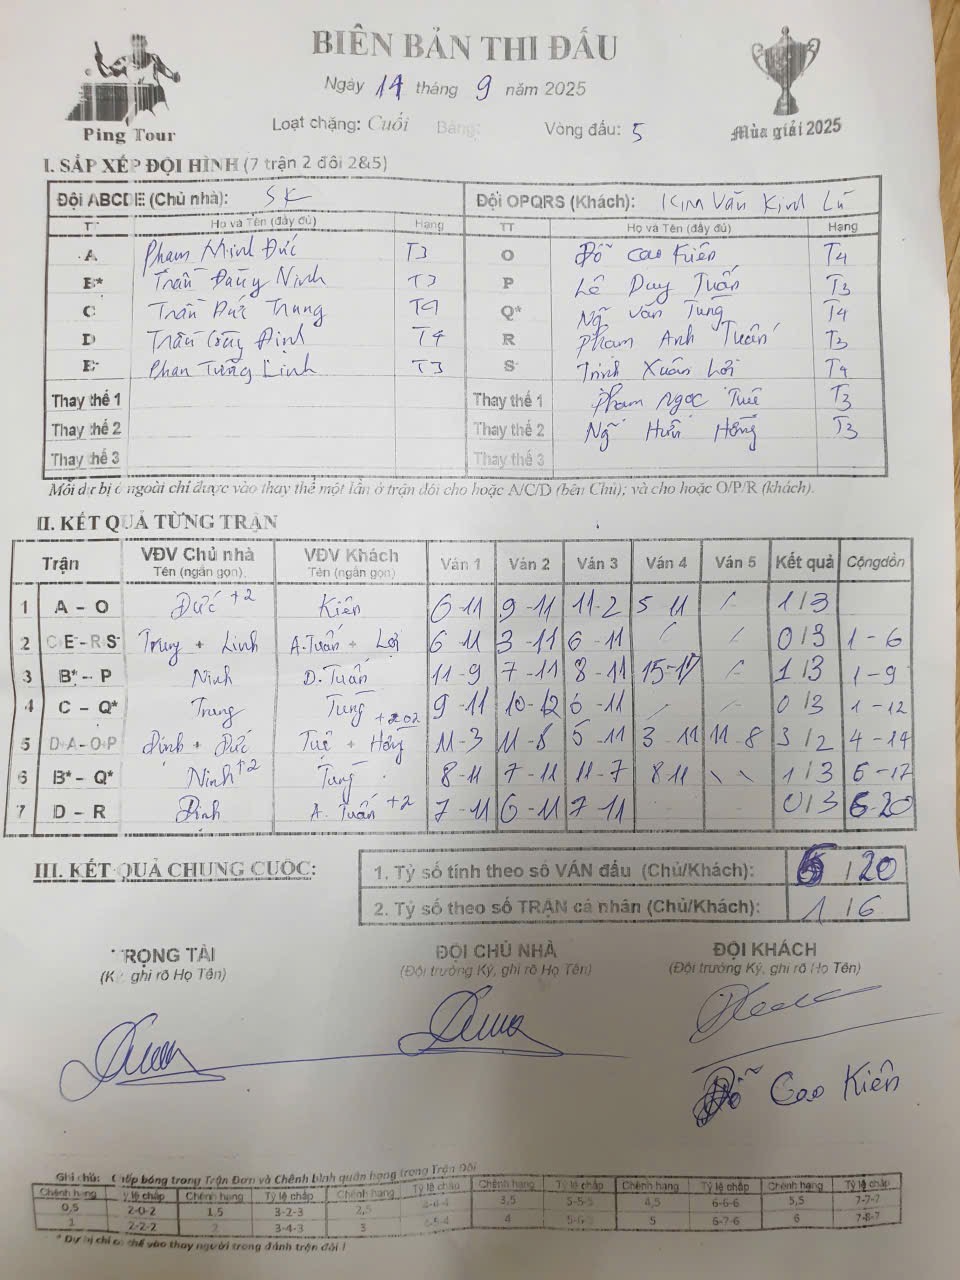 BIÊN BẢN THI ĐẤU
Ngày 14 tháng 9 năm 2025
Ping Tour
Loạt chặng: Cuối Bảng: Vòng đấu: 5
Mùa giải 2025
I. SẮP XẾP ĐỘI HÌNH (7 trận 2 đôi 2&5)
Đội ABCDE (Chủ nhà): SK Đội OPQRS (Khách): Kim Văn Kinh Lũ
TT Họ và Tên (đầy đủ) Hạng TT Họ và Tên (đầy đủ) Hạng
A Phạm Minh Đức T3 O Đỗ Cao Kiên T4
B* Trần Đăng Ninh T3 P Lê Duy Tuấn T3
C Trần Đức Trung T4 Q* Ng Văn Tùng T4
D Trần Công Định T4 R Phạm Anh Tuấn T3
E Phan Tùng Linh T3 S Trịnh Xuân Lợi T4
Thay thế 1 Thay thế 1 Phạm Ngọc Tuệ T3
Thay thế 2 Thay thế 2 Ng Hữu Hồng T3
Thay thế 3 Thay thế 3
Mỗi dự bị ở ngoài chỉ được vào thay thế một lần ở trận đôi cho hoặc A/C/D (bên Chủ); và cho hoặc O/P/R (khách).
II. KẾT QUẢ TỪNG TRẬN
Trận VĐV Chủ nhà Tên (ngắn gọn) VĐV Khách Tên (ngắn gọn) Ván 1 Ván 2 Ván 3 Ván 4 Ván 5 Kết quả Cộngdồn
1 A – O Đức +2 Kiên 6-11 9-11 11-2 5-11 / 1/3
2 C E – R S Trung + Linh A.Tuấn + Lợi 6-11 3-11 6-11 / / 0/3 1-6
3 B* – P Ninh D.Tuấn 11-9 7-11 8-11 15-17 / 1/3 1-9
4 C – Q* Trung Tùng 9-11 10-12 6-11 / / 0/3 1-12
5 D+A – O+P Định + Đức Tuệ + Hồng +202 11-3 11-8 5-11 3-11 11-8 3/2 4-14
6 B* – Q* Ninh +2 Tùng 8-11 7-11 11-7 8-11 \ \ 1/3 5-17
7 D – R Định A. Tuấn +2 7-11 6-11 7-11 0/3 5-20
III. KẾT QUẢ CHUNG CUỘC:
1. Tỷ số tính theo số VÁN đấu (Chủ/Khách): /20
2. Tỷ số theo số TRẬN cá nhân (Chủ/Khách): 1/6
TRỌNG TÀI ĐỘI CHỦ NHÀ ĐỘI KHÁCH
(Ký, ghi rõ Họ Tên) (Đội trưởng Ký, ghi rõ Họ Tên) (Đội trưởng Ký, ghi rõ Họ Tên)
Đỗ Cao Kiên
Ghi chú: Chấp bóng trong Trận Đơn và Chênh bình quân hạng trong Trận Đôi
Chênh hạng Tỷ lệ chấp Chênh hạng Tỷ lệ chấp Chênh hạng Tỷ lệ chấp Chênh hạng Tỷ lệ chấp Chênh hạng Tỷ lệ chấp Chênh hạng Tỷ lệ chấp
0,5 2-0-2 1,5 3-2-3 2,5 4-4-4 3,5 5-5-5 4,5 6-6-6 5,5 7-7-7
1 2-2-2 2 3-4-3 3 4 5 6-7-6 6 7-8-7
* Dự bị chỉ có thể vào thay người trong đánh trận đôi !